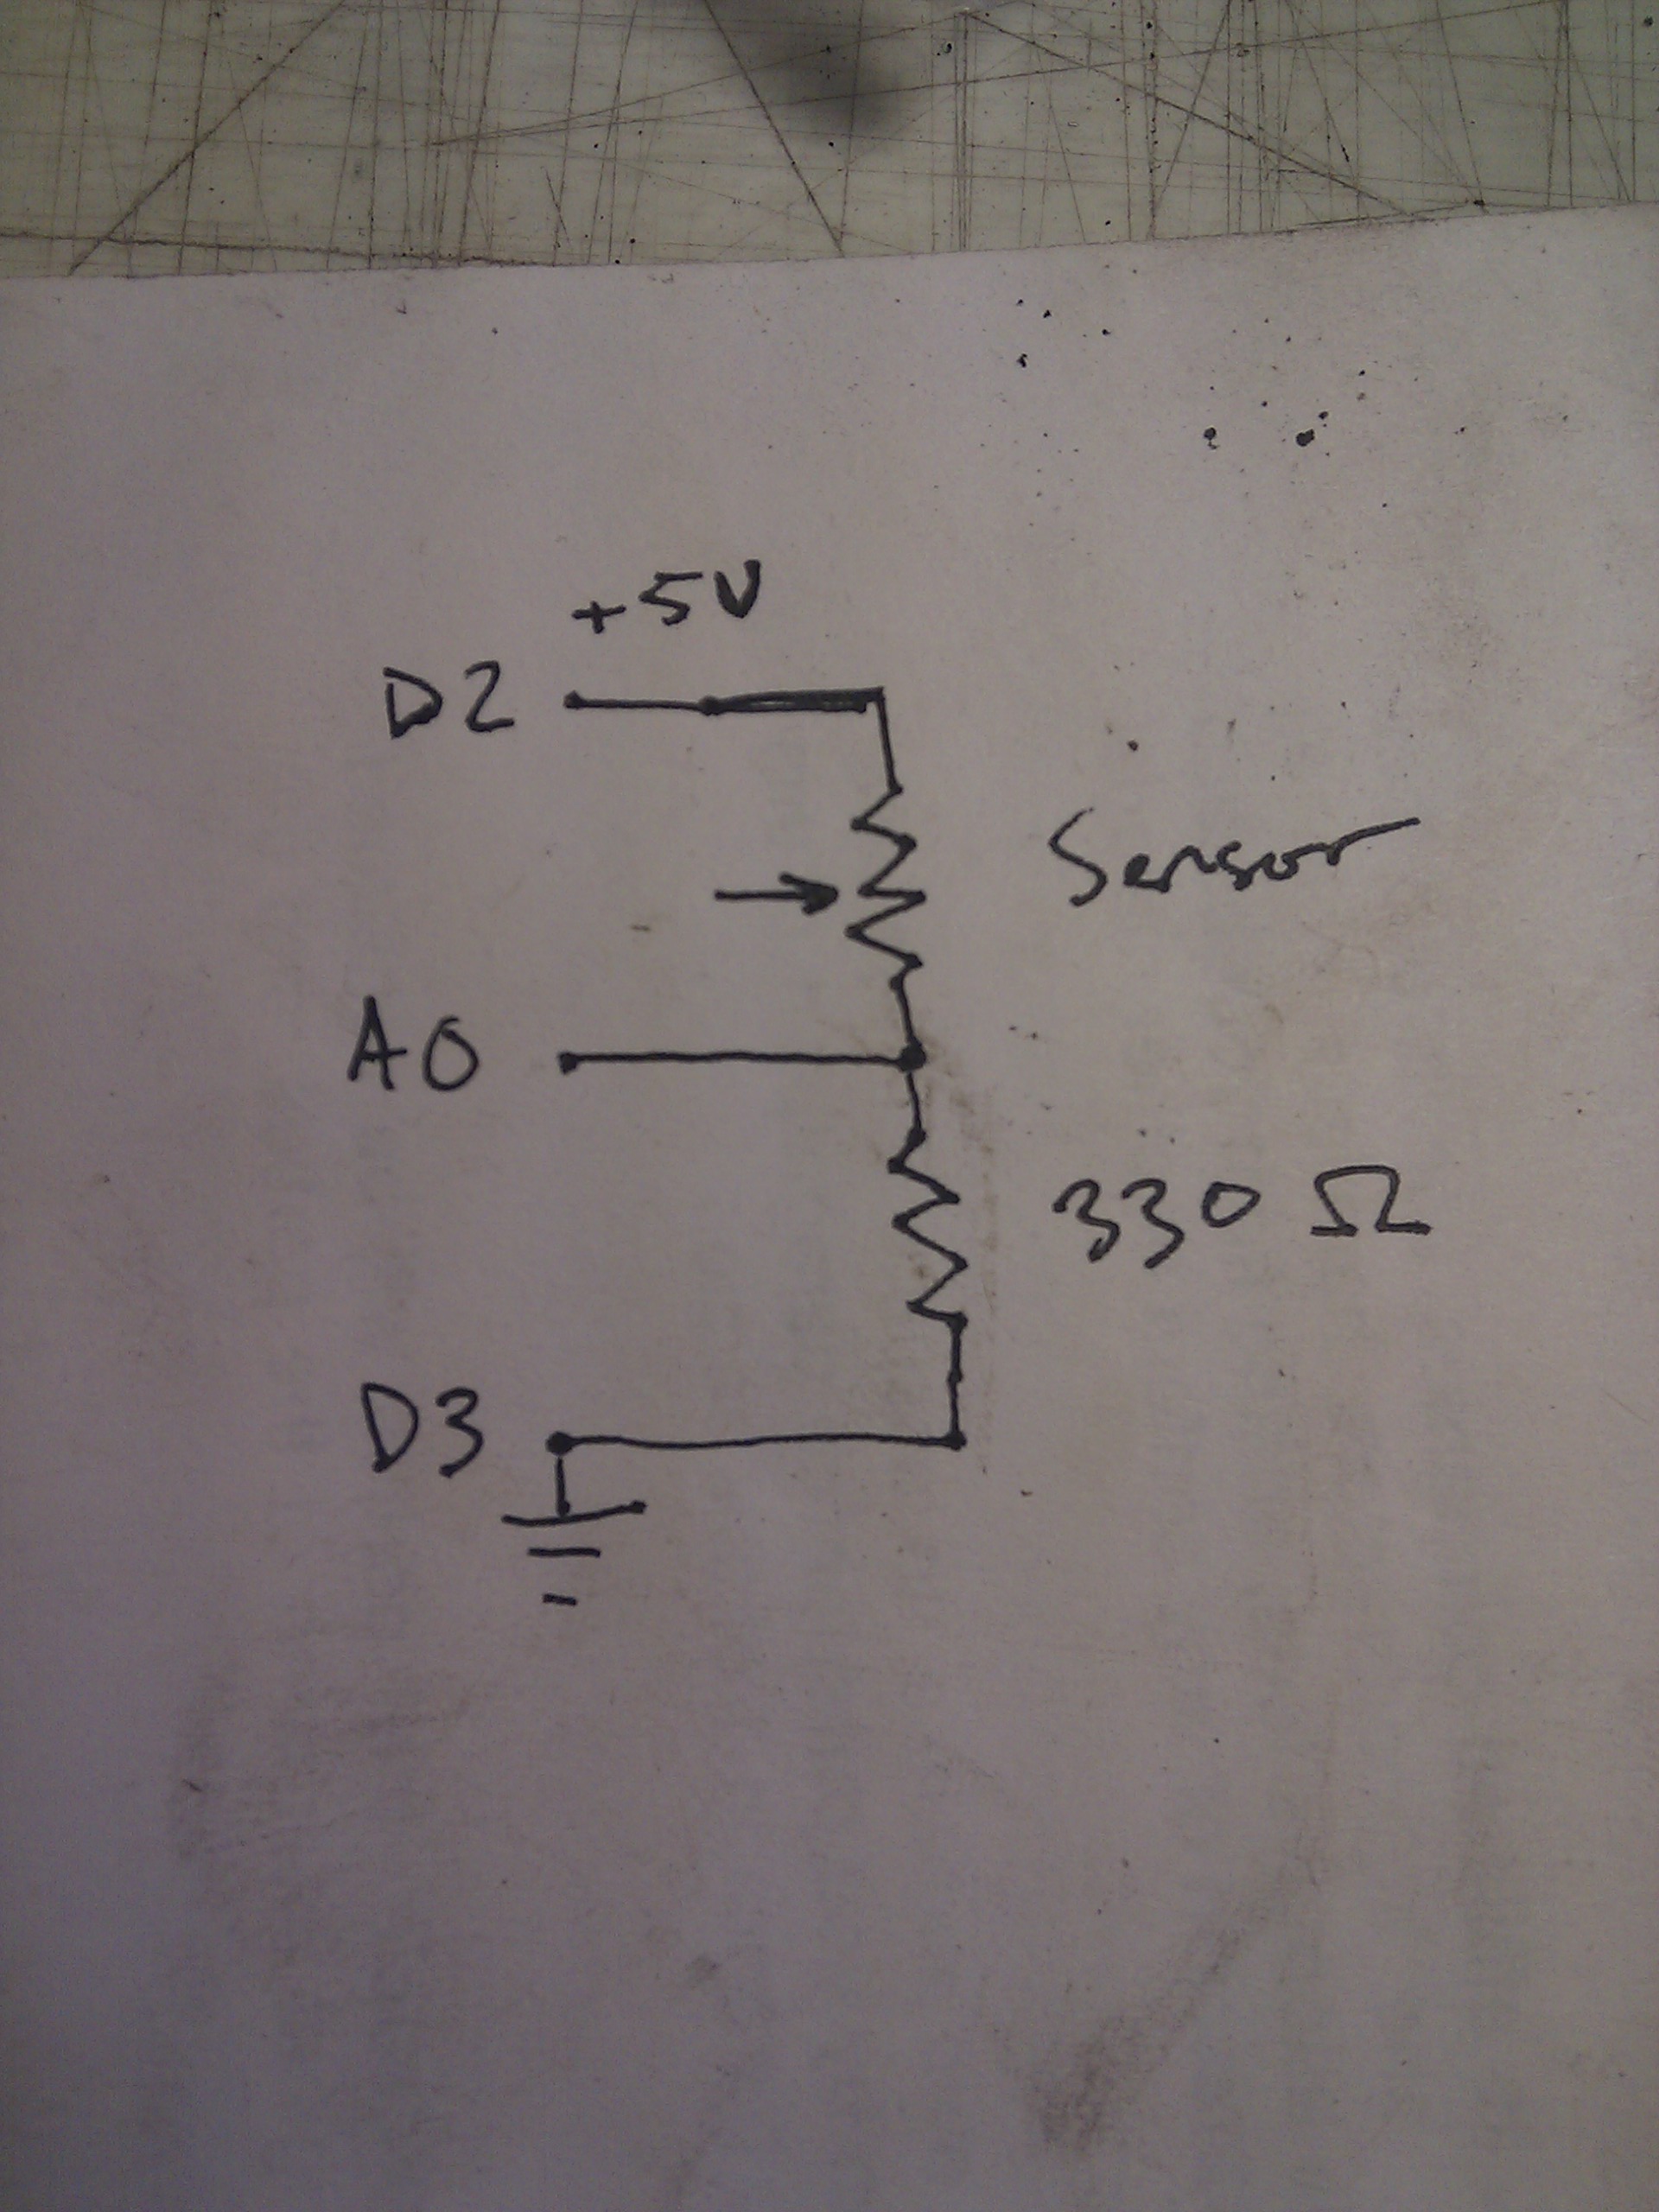 +5V
D2
Sensor
A0
330 Ω
D3